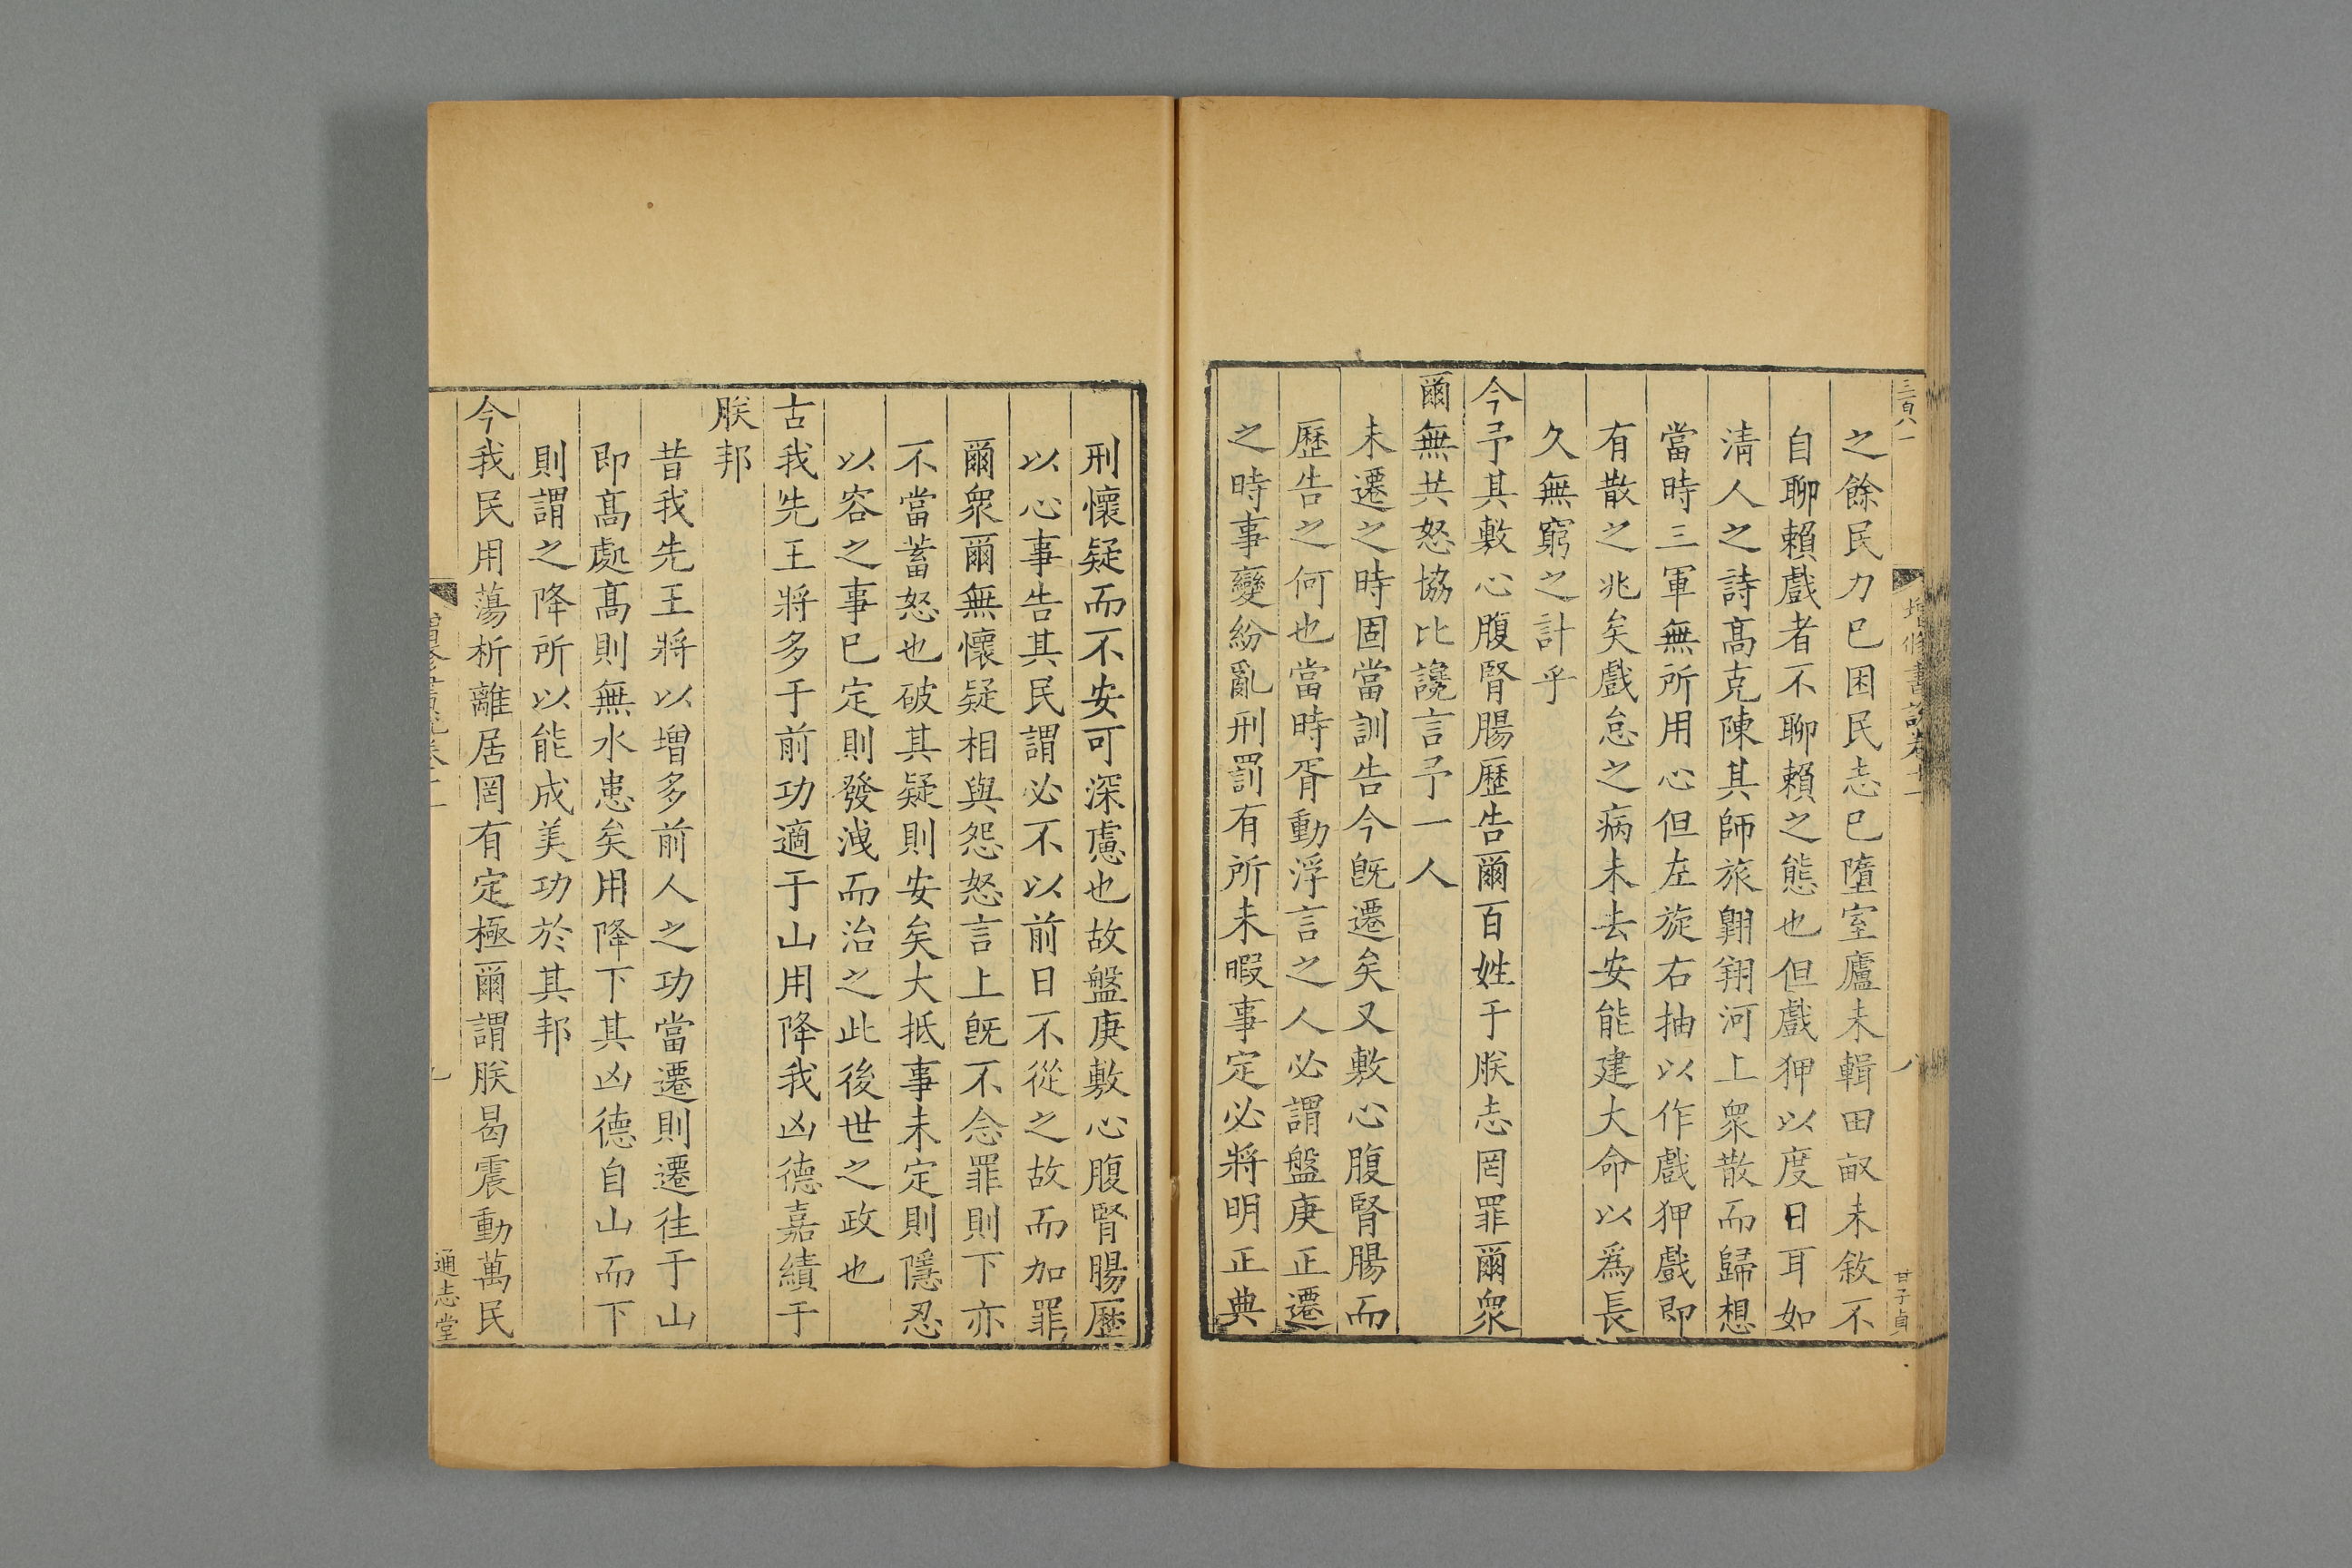 之餘民力已困民志已墮室廬未輯田畝未敘不
自聊賴戲者不聊賴之態也但戲狎以度日耳如
淸人之詩髙克陳其師旅翺翔河上衆散而歸想
當時三軍無所用心但左旋右抽以作戲狎戲即
有散之兆矣戲怠之病未去安能建大命以爲長
久無窮之計乎
今予其敷心腹腎腸歷告爾百姓于朕志罔罪爾衆
爾無共怒協比讒言予一人
未遷之時固當訓告今旣遷矣又敷心腹腎腸而
歷告之何也當時胥動浮言之人必謂盤庚正遷
之時事變紛亂刑罰有所未暇事定必將明正典
刑懷疑而不安可深慮也故盤庚敷心腹腎腸歷
以心事告其民謂必不以前日不從之故而加罪
爾衆爾無懷疑相與怨怒言上旣不念罪則下亦
不當蓄怒也破其疑則安矣大抵事未定則隱忍
以容之事已定則發洩而治之此後世之政也
古我先王將多于前功適于山用降我凶德嘉績于
朕邦
昔我先王將以增多前人之功當遷則遷往于山
即髙處髙則無水患矣用降下其凶德自山而下
則謂之降所以能成美功於其邦
今我民用蕩析離居罔有定極爾謂朕曷震動萬民
通志堂